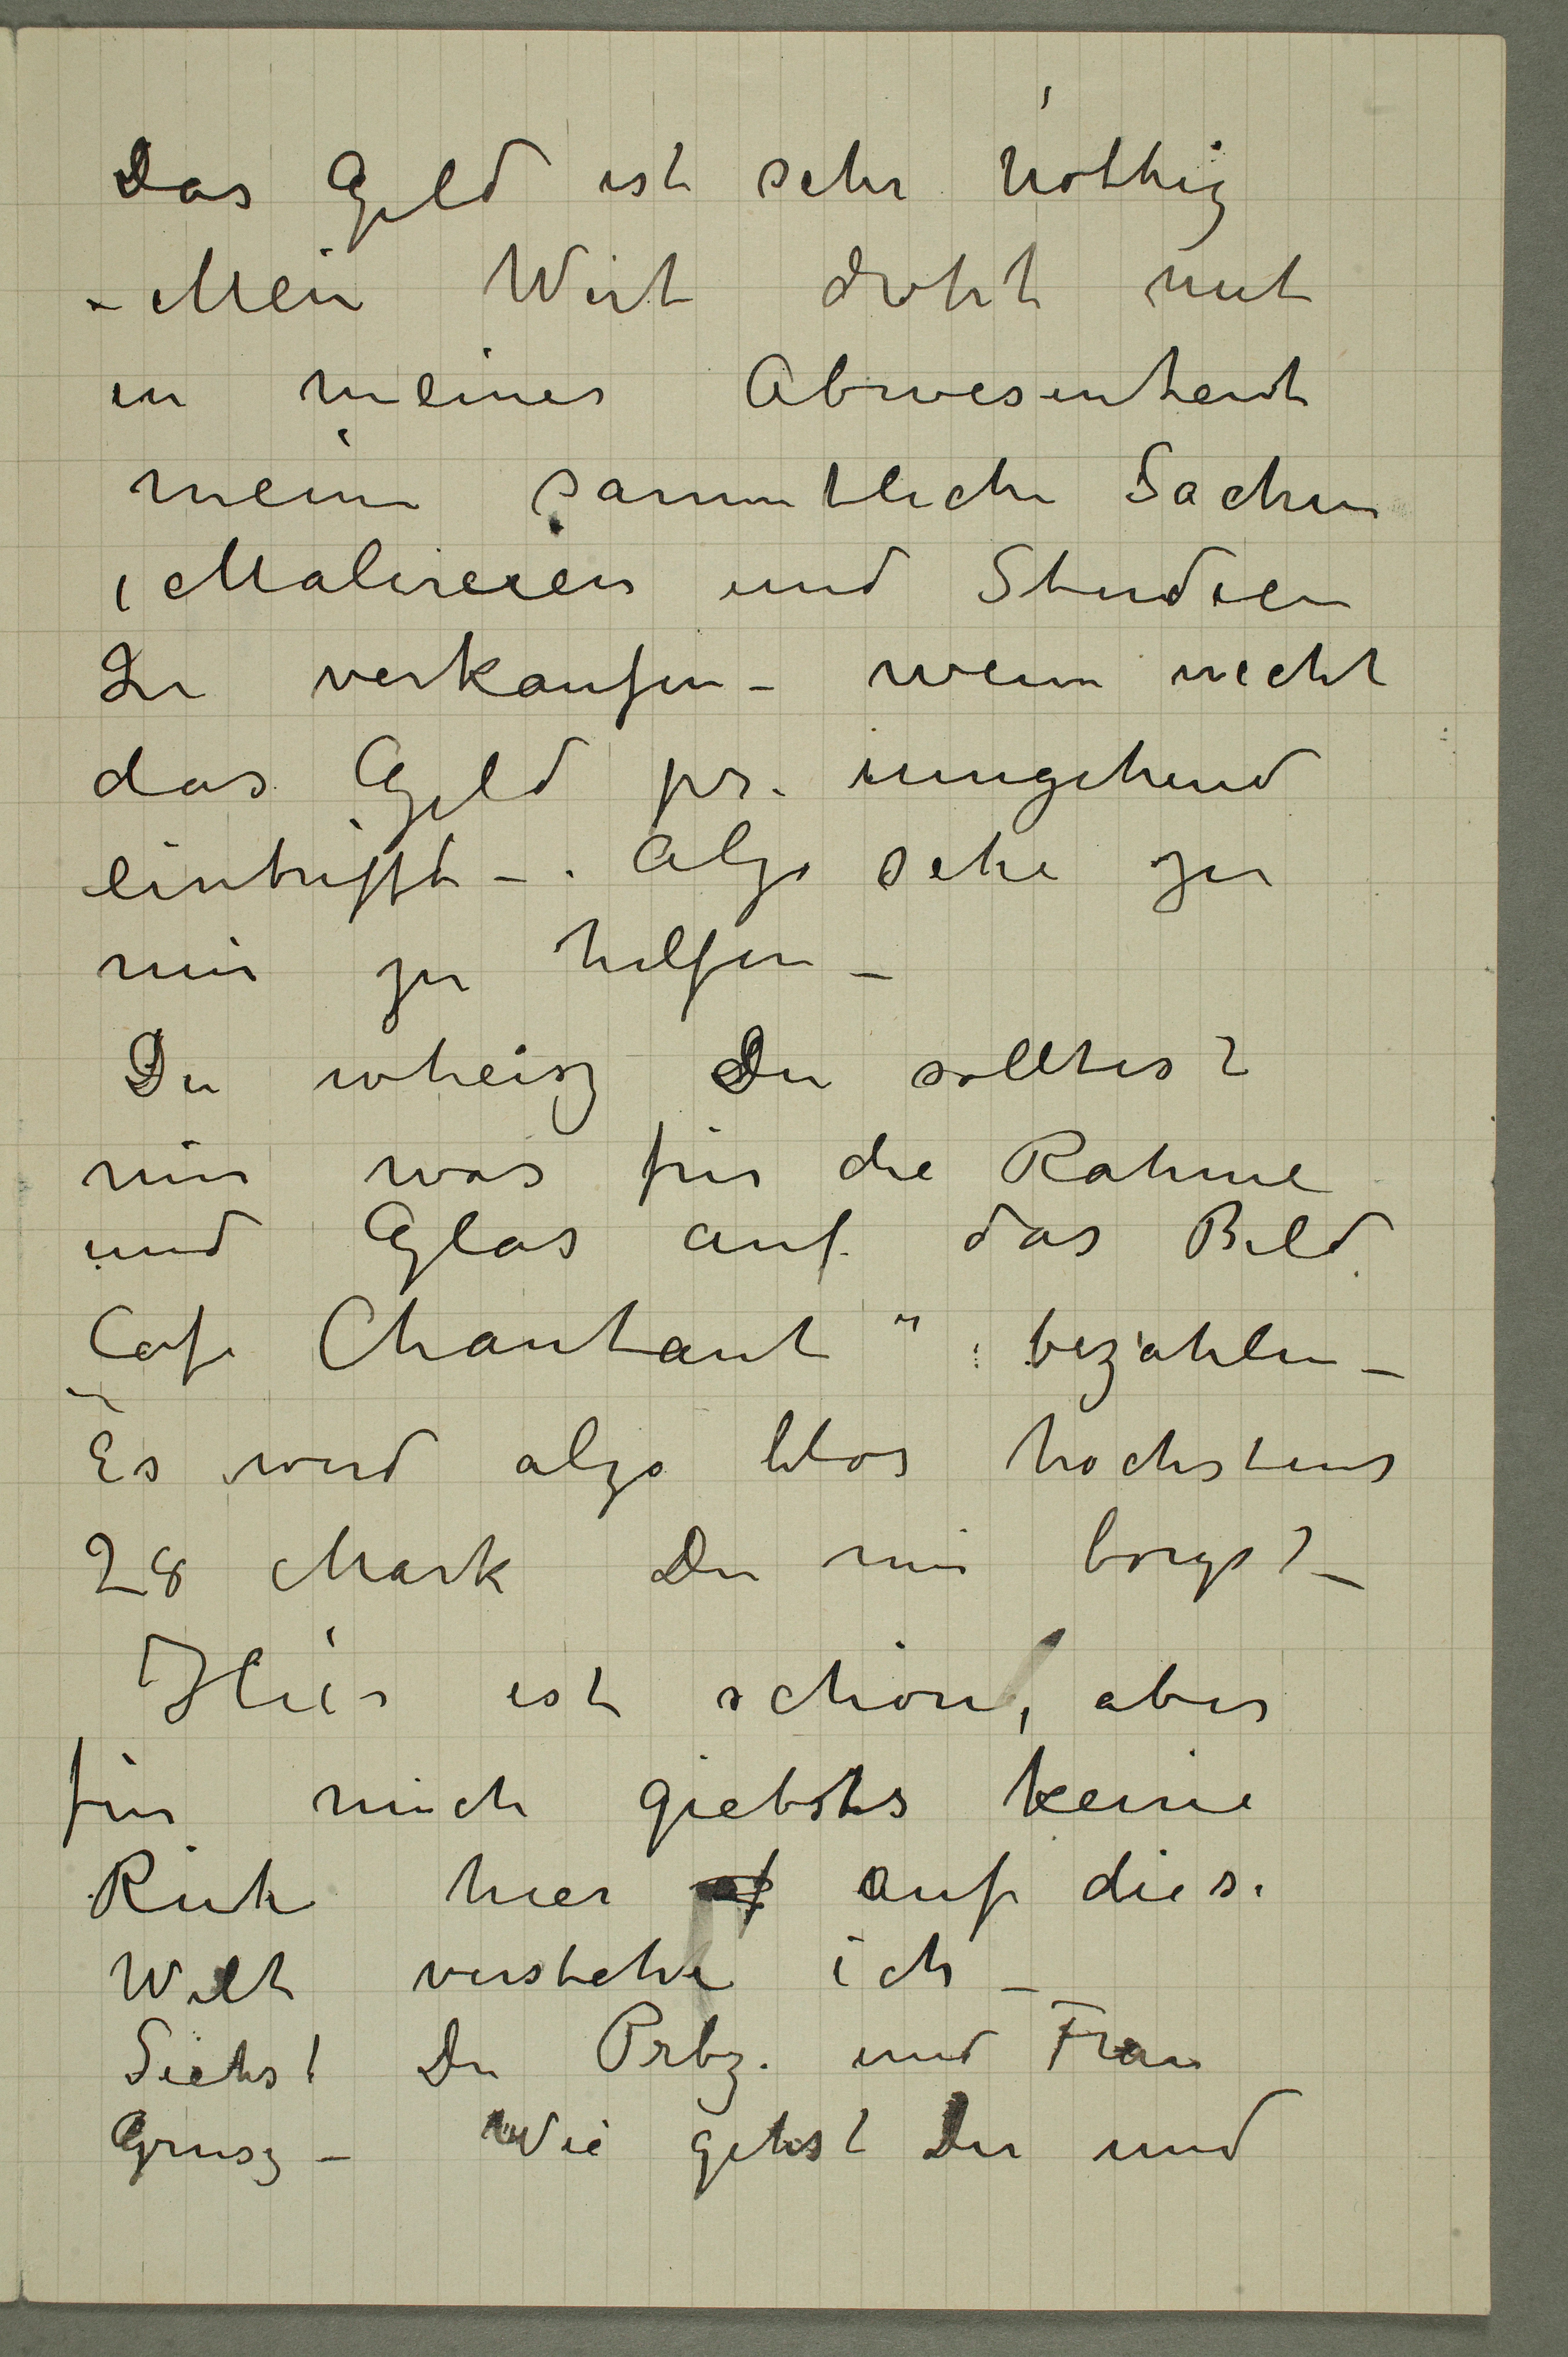 Das Geld ist sehr nöthig
– Mein Wirt droht mit
in meiner Abwesenheidt
meine sammtliche Sachen
(Malireien und Studien
zu verkaufen – wenn nicht
das Geld pr. umgehend
eintrifft –. Also sehe zu
mir zu helfen –
Du wheisz Du solltest
mir was für die Rahme
und Glas auf das Bild
Cafe Chantant" bezahlen –
Es wird also blos hochstens
28 Mark Du mir borgst –
Hier ist schön, aber
für mich giebts keine
Ruhe hier af auf diese
Welt verstehe ich –
Siehst Du Prbz. und Frau
Grusz – Wie gehst Du und